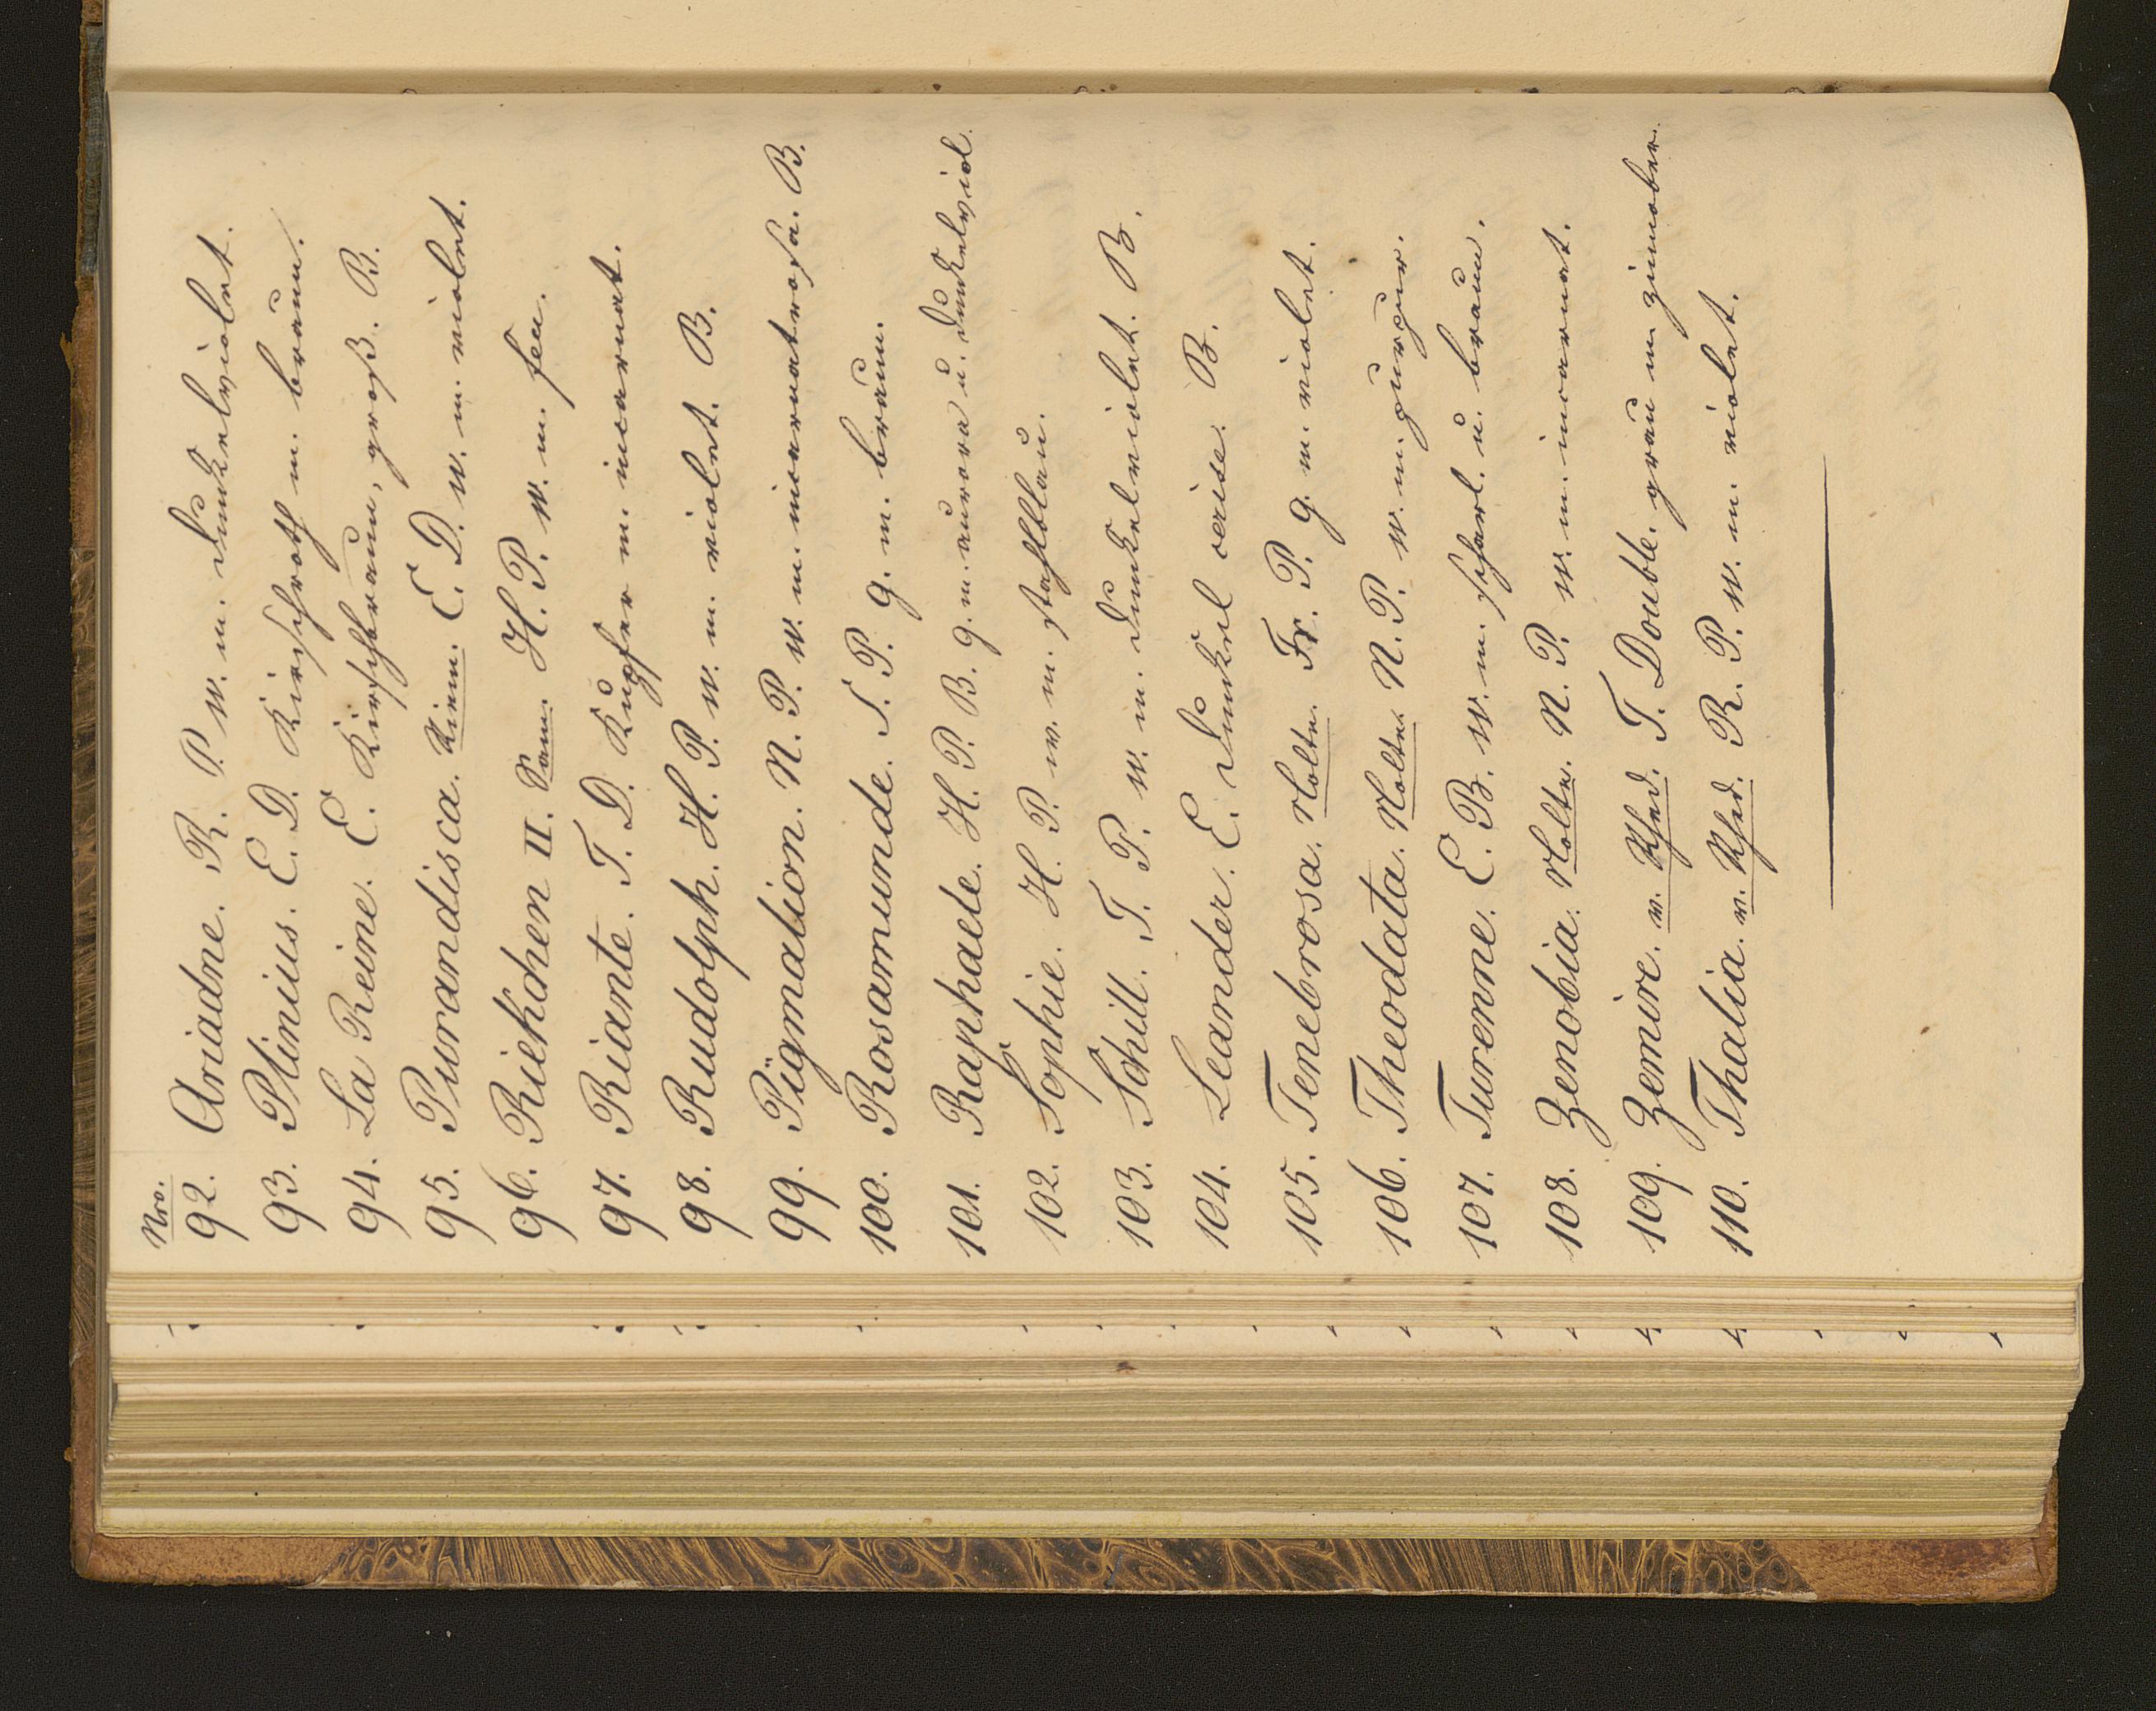 Nro.
92. Ariadne. R. P. w. m. dunkelviolet.
93. Plinius. E. D. Kirschroth m. braun.
94. La Reine. E. Kirschbraun, groß. B.
95. Purandisca. E. D. w. m. violet.
96. Riekchen II. H. P. w. m. feu.
97. Riante. T. D. Kupfer m. incarnat.
98. Rudolph. H. P. w. m. violet. B.
99. Pigmalion. N. P. w. m. incarnatrosa. B.
100. Rosamunde. S. P. g. m. braun.
101. Raphaele. H. P. B. g. m. aurora u. dunkelviol.
102. Sophie. H. P. w. m. stahlblau.
103. Schill. T. P. w. m. dunkelviolet. B.
104. Leander. E. dunkel cerise. B.
105. Tenebrosa. Nolte. Fr. P. g. m. violet.
106. Theodata. Nolte. N. P. w. m. purpur.
107. Turenne. E. B. w. m. scharl. u. braun.
108. Zenobia. Nolte. N. P. w. m. incarnat.
109. Zemire. v. Rhed. T. Double. grau m. zinnober.
110. Thalia. v. Rhed. R. P. w. m. violet.